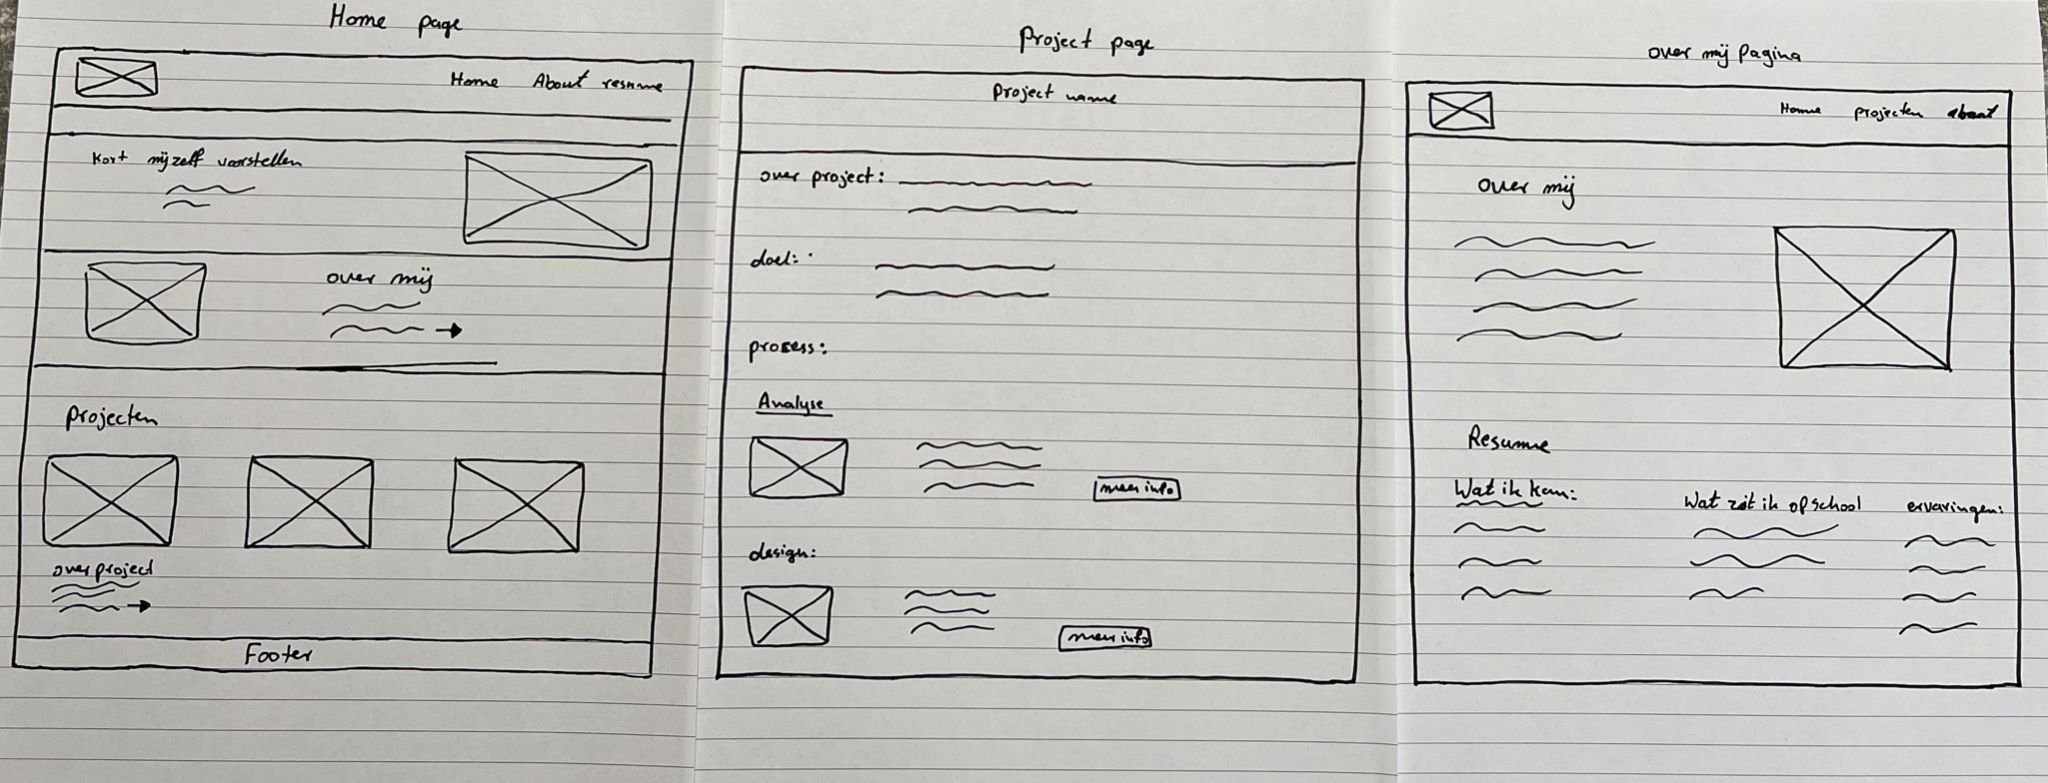 Home page
Home About resume
Kort mijzelf voorstellen
over mij
Projecten
over project
Footer
Project page
Project name
over project:
doel:
prosess:
Analyse
meer info
design:
meer info
over mij Pagina
Home projecten about
over mij
Resume
Wat ik kan:
Wat zit ik op school
ervaringen: